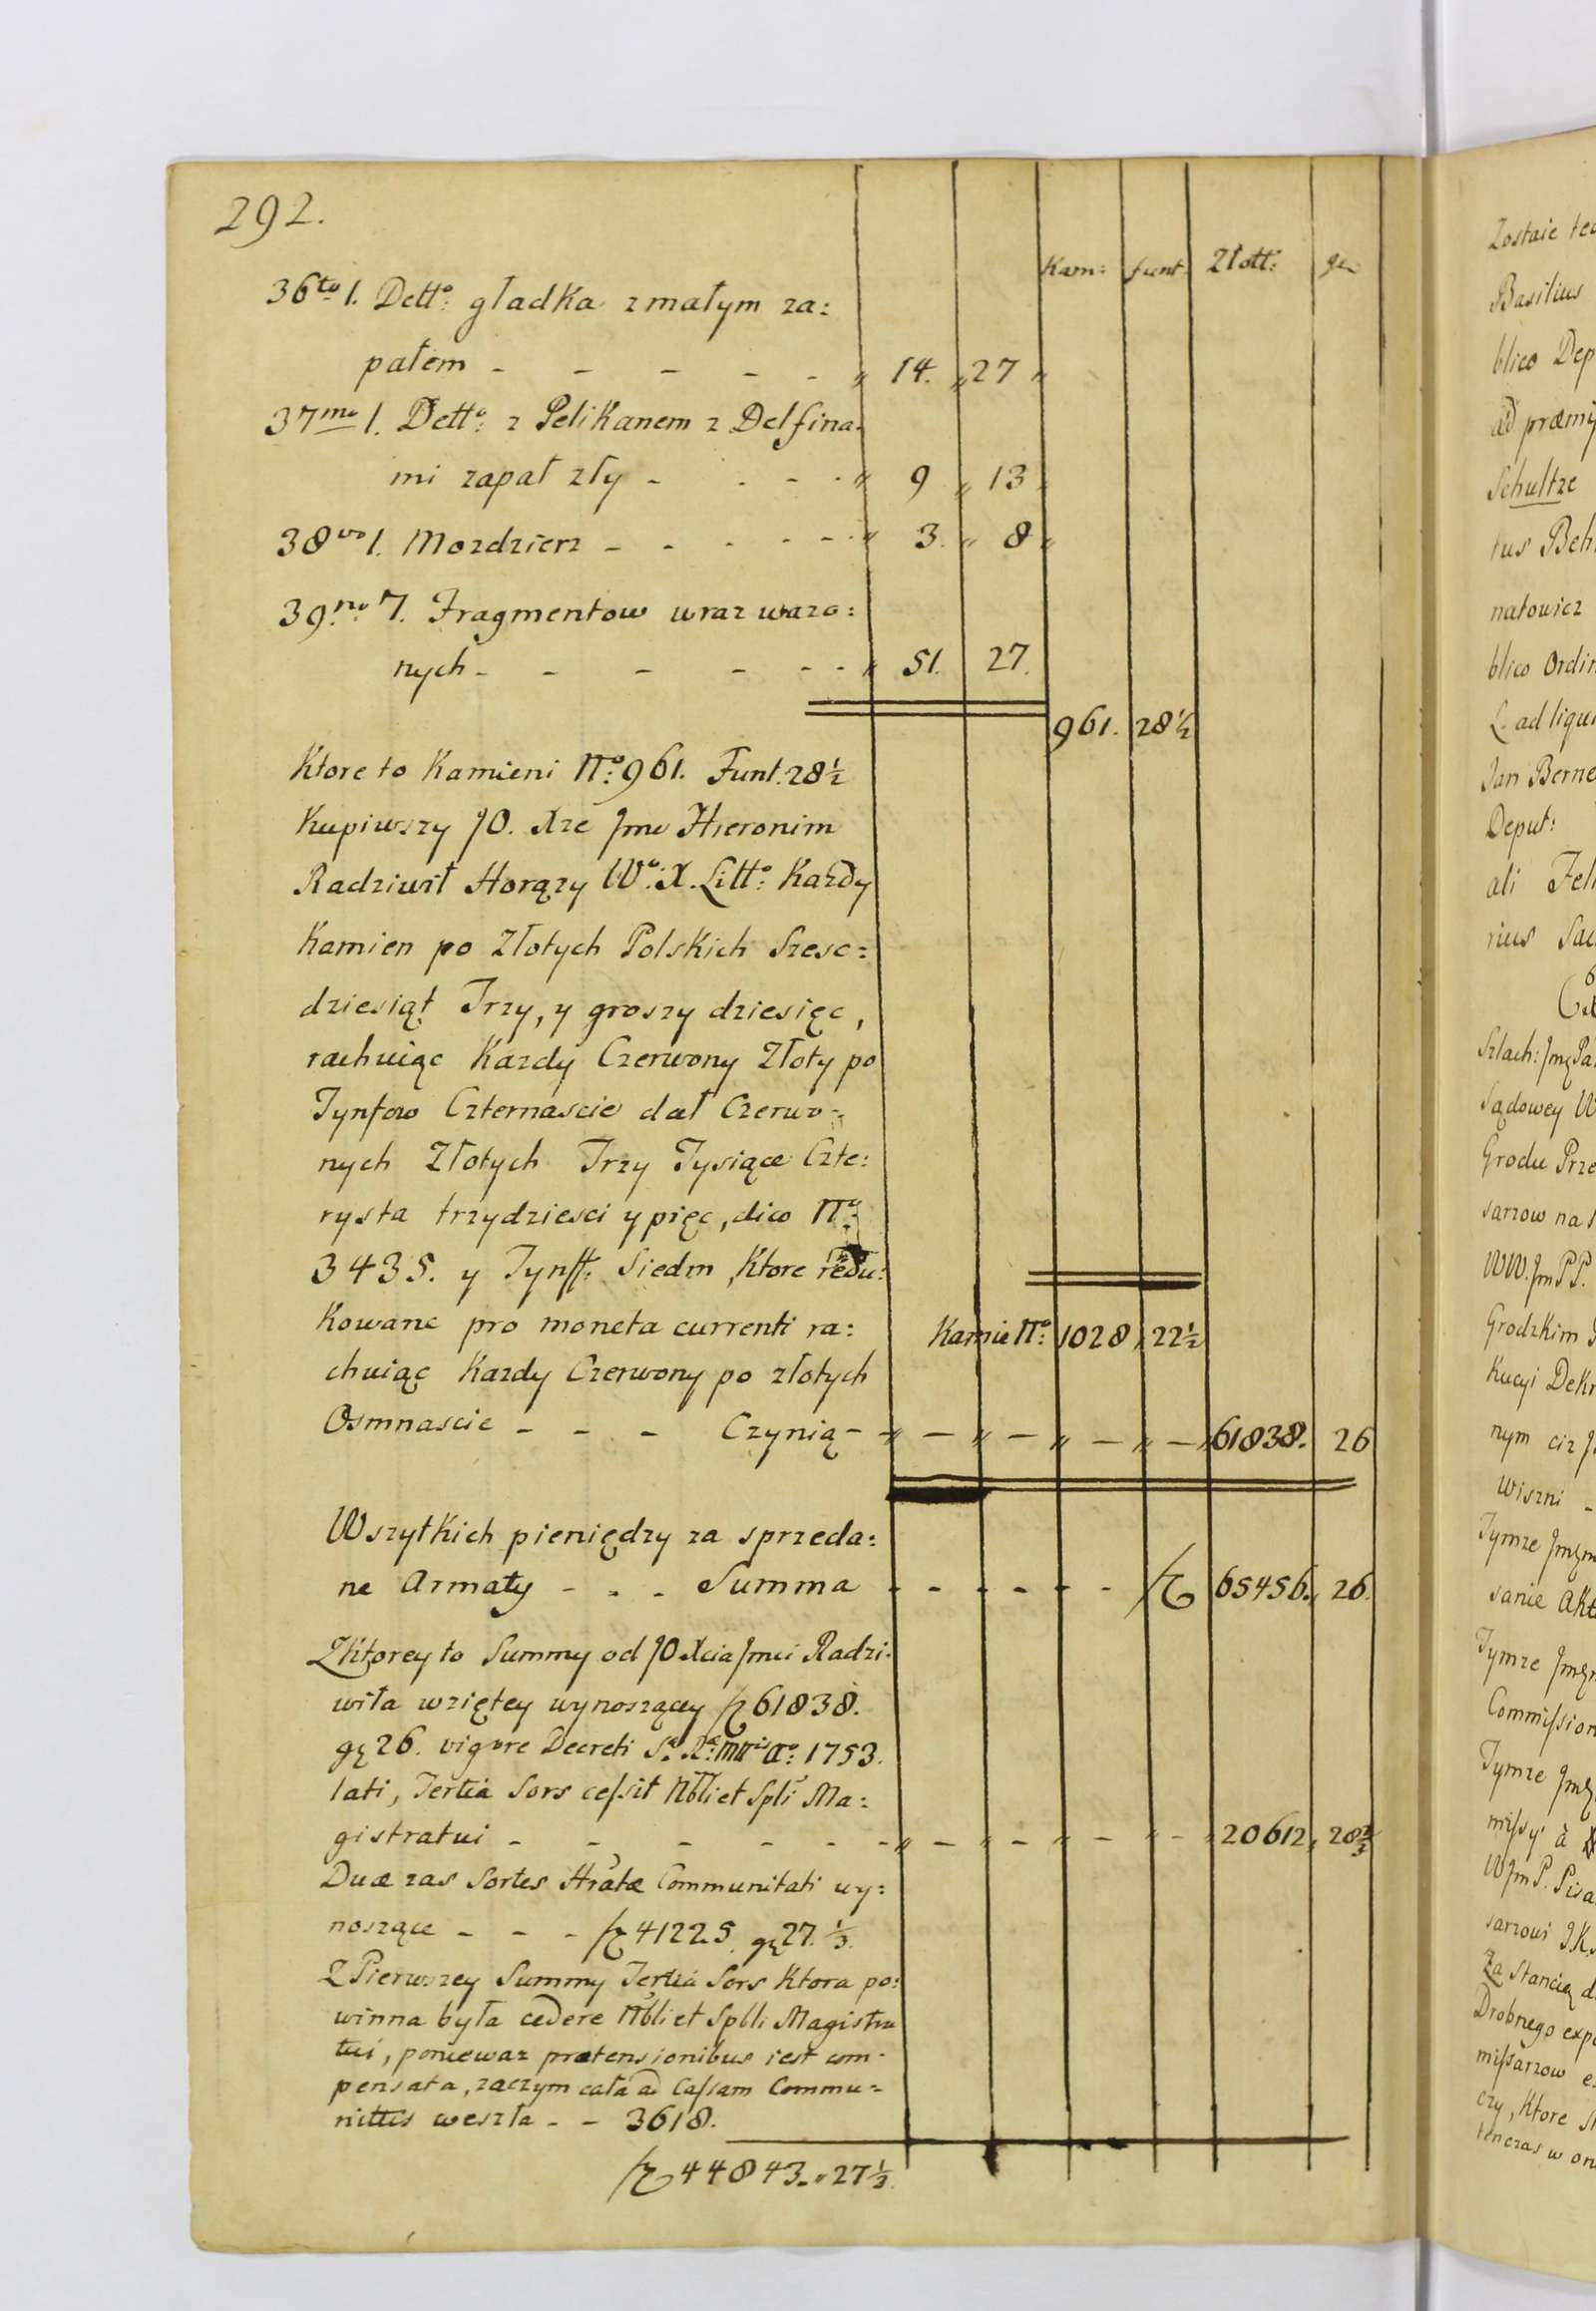 292.
Kam: funt. Złott: gr
36to 1. Detto: gładka z małym za:
pałem - - - - - „ 14. „ 27 „
37mo 1. Detto: z Pelikanem z Delfina.
mi zapał zły - - - - „ 9 „ 13 „
38vo 1. Mozdzierz - - - - - „ 3. „ 8 „
39no 7. Fragmentow wraz wazo:
nych - - - - - - „ 51. 27.
961. 28½
Ktore to Kamieni No: 961. Funt. 28½
Kupiwszy JO. Xze Jmc Hieronim
Radziwił Horązy Wo: X. Litto: Kazdy
Kamien po Złotych Polskich Szesc=
dziesiąt Trzy, y groszy dziesięc,
rachuiąc Kazdy Czerwony Złoty po
Tynfow Czternascie dał Czerwo-
nych Złotych Trzy Tysiące Czte:
rysta trzydziesci y pięc, dico No:
3435. y Tynff: Siedm, Ktore redu:
Kowane pro moneta currenti ra:
Kamie No: 1028 22½
chuiąc Kazdy Czerwony po złotych
Osmnascie - - - Czynią - „ - „ - „ - „ - „ 61838. 26
Wszytkich pieniędzy za sprzeda:
ne Armaty - - - Summa - - - - - - fl 65456. 26.
Z Ktorey to Summy od JO Xcia Jmci Radzi.
wiła wziętey wynoszącey fl 61838.
gr 26. vigore Decreti Sae Rae Mttis Ao: 1753.
lati, Tertia Sors cessit Nbli et Spli Ma:
gistratui - - - - - - „ - „ - „ - „ - „ 20612, 28⅔
Duæ zas Sortes Hratæ Communitati wy:
noszące - - - fl 41225. gr 27.⅓.
Z Pierwszey Summy Tertia Sors Ktora po:
winna była cedere Nbli et Splli Magistra
tui, poniewaz prætensionibus iest com-
pensata, zaczym cała ad Cassam Commu=
nittis weszła - - 3618.
fl 44843. „ 27⅓.
Basilius
blico Dep
Schultze
tus Beh
natowicz
blico Ordin
Jan Berne
Deput:
ali Feli
rius Sac
Sądowey W
Grodu Prze
sarzow na
WW. Jm PP.
Grodzkim
Kucyi Dekr
Wiszni -
Tymze Jmę
sanie Akt
Tymze Jmę
Commission
Tymze Jmę
missyi à
sarzowi J.K.
Za Stancią d
Drobnego expe
missarzow e
czy, Ktore
tenczas w on